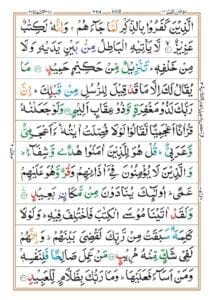 الَّذِيْنَ كَفَرُوْا بِالذِّكْرِ لَمَّا جَآءَهُمْ ۚ وَاِنَّهٗ لَكِتٰبٌ
عَزِيْزٌ ۙ لَّا يَاْتِيْهِ الْبَاطِلُ مِنْۢ بَيْنِ يَدَيْهِ وَلَا
مِنْ خَلْفِهٖ ؕ تَنْزِيْلٌ مِّنْ حَكِيْمٍ حَمِيْدٍ مَا
يُقَالُ لَكَ اِلَّا مَا قَدْ قِيْلَ لِلرُّسُلِ مِنْ قَبْلِكَ ؕ اِنَّ
رَبَّكَ لَذُوْ مَغْفِرَةٍ وَّذُوْ عِقَابٍ اَلِيْمٍ وَلَوْ جَعَلْنٰهُ
قُرْاٰنًا اَعْجَمِيًّا لَّقَالُوْا لَوْلَا فُصِّلَتْ اٰيٰتُهٗ ؕ ءَاَعْجَمِيٌّ
وَّعَرَبِيٌّ ؕ قُلْ هُوَ لِلَّذِيْنَ اٰمَنُوْا هُدًى وَّشِفَآءٌ ؕ
وَالَّذِيْنَ لَا يُؤْمِنُوْنَ فِيْۤ اٰذَانِهِمْ وَقْرٌ وَّهُوَ عَلَيْهِمْ
عَمًى ؕ اُولٰٓئِكَ يُنَادَوْنَ مِنْ مَّكَانٍۭ بَعِيْدٍ
وَلَقَدْ اٰتَيْنَا مُوْسَى الْكِتٰبَ فَاخْتُلِفَ فِيْهِ ؕ وَلَوْلَا
كَلِمَةٌ سَبَقَتْ مِنْ رَّبِّكَ لَقُضِيَ بَيْنَهُمْ ؕ وَاِنَّهُمْ
لَفِيْ شَكٍّ مِّنْهُ مُرِيْبٍ مَنْ عَمِلَ صَالِحًا فَلِنَفْسِهٖ
وَمَنْ اَسَآءَ فَعَلَيْهَا ؕ وَمَا رَبُّكَ بِظَلَّامٍ لِّلْعَبِيْدِ